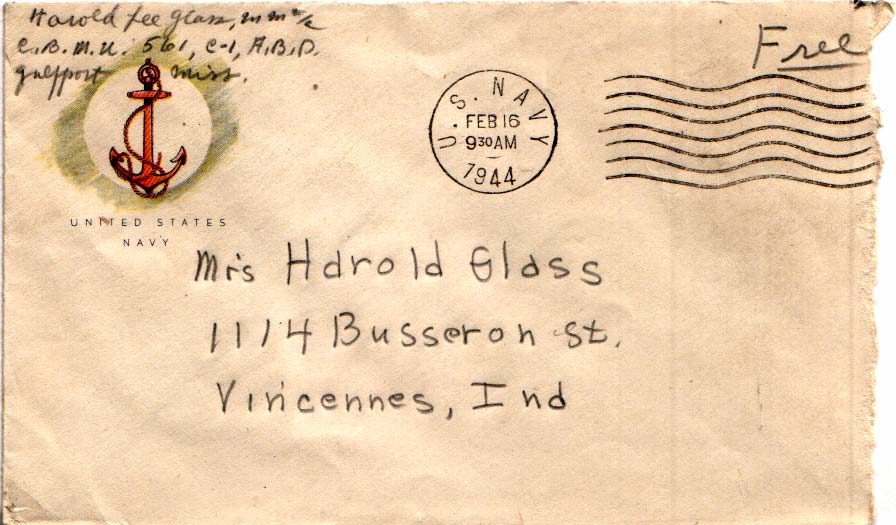 Harold Lee Glass, M M 2/c
C.B.M.U. 561, C-1, A.B.D.
Gulfport Miss.
Free
U.S. NAVY
FEB 16
9 30 AM
1944
UNITED STATES
NAVY
Mrs Harold Glass
1114 Busseron St.
Vincennes, Ind